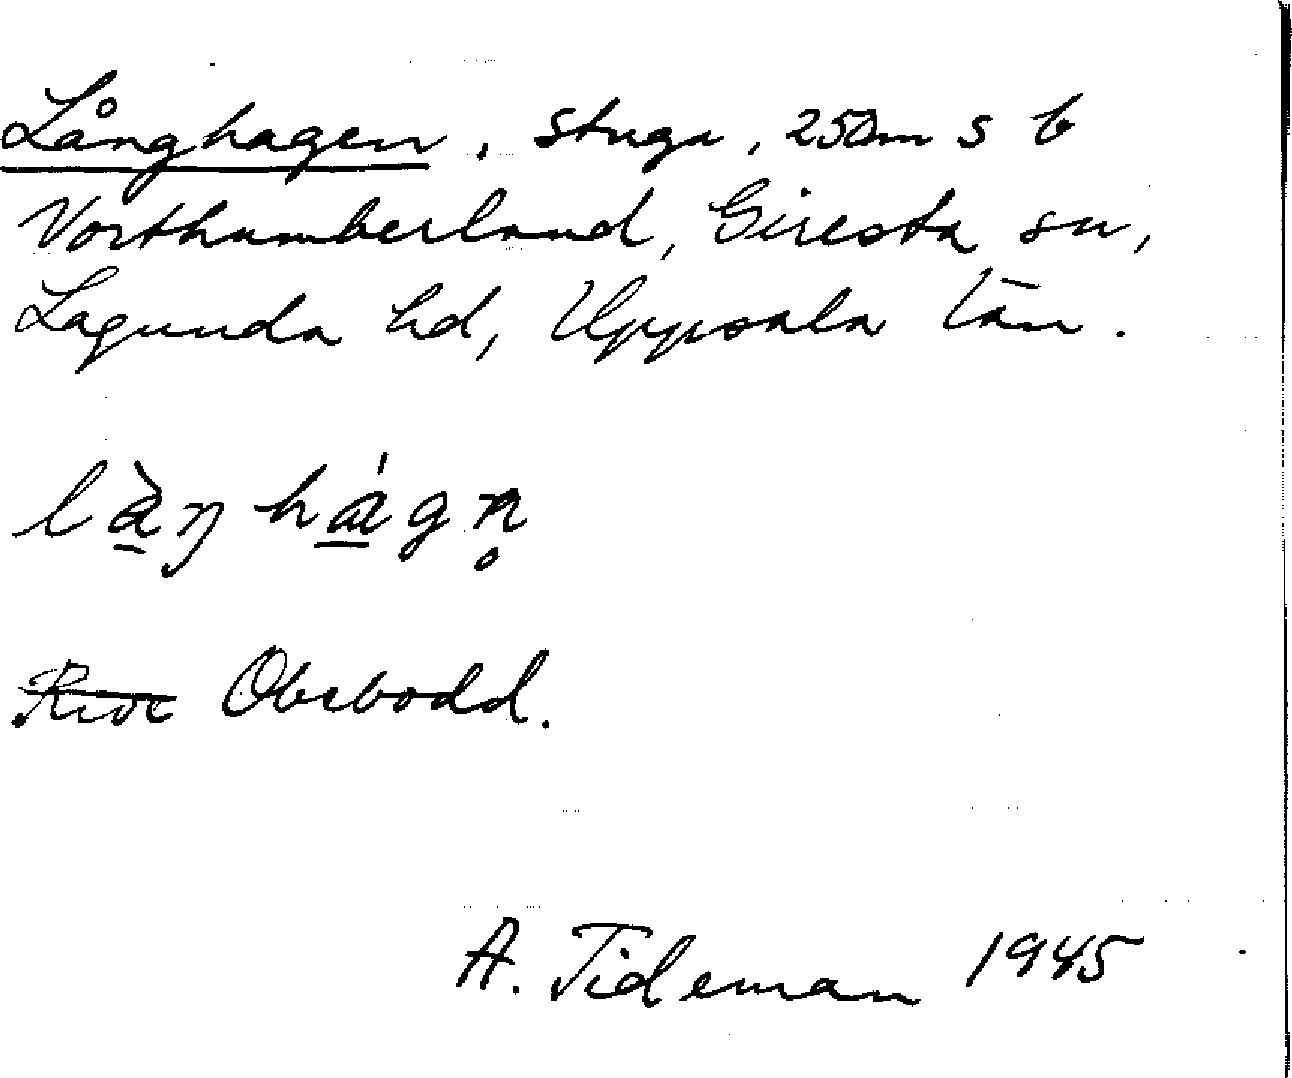 Långhagen, stuga, 250m s b
Northumberland, Giresta sn,
Lagunda hd, Uppsala län.
lа̀ŋhágn̥
Obebodd.
A. Tideman 1945